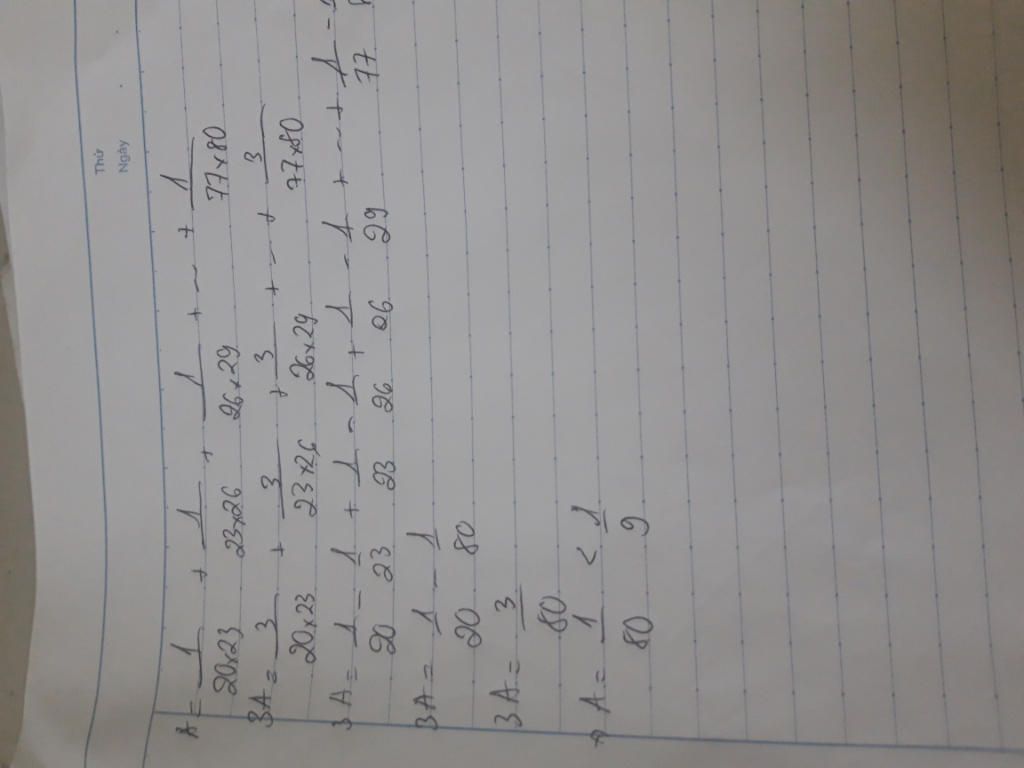 Thứ
Ngày
A = 1/20x23 + 1/23x26 + 1/26x29 + ... + 1/77x80
3A = 3/20x23 + 3/23x26 + 3/26x29 + ... + 3/77x80
3A = 1/20 - 1/23 + 1/23 - 1/26 + 1/26 - 1/29 + ... + 1/77 -
3A = 1/20 - 1/80
3A = 3/80
=> A = 1/80 < 1/9